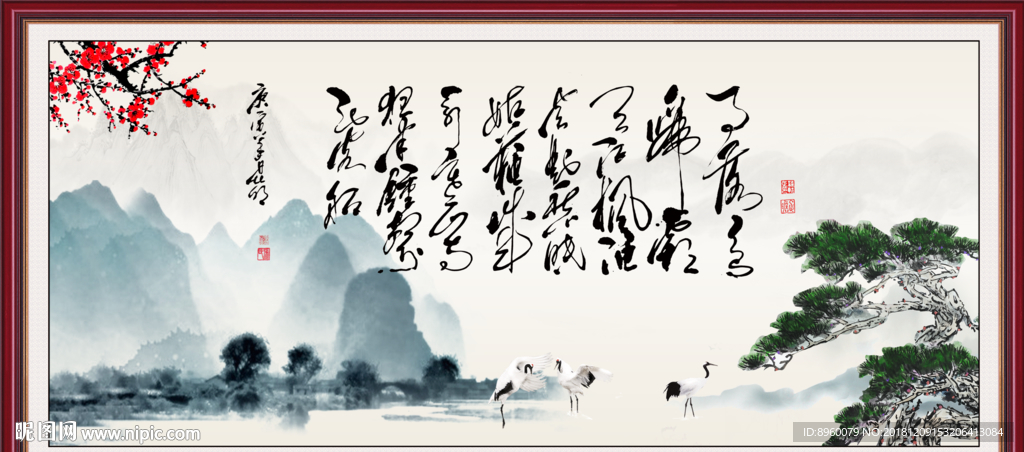 月落烏
啼霜
天江楓漁
火對愁眠
姑蘇城
外寒山寺
夜半鐘聲
到客船
昵图网 www.nipic.com
ID:8960079 NO:20181209153206413084